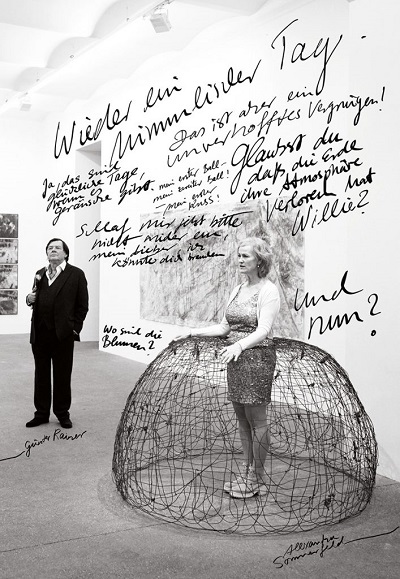 Wieder ein
himmlischer Tag.
Das ist aber ein
unverhofftes Vergnügen!
Ja, das sind
glückliche Tage,
wenn es
Geräusche gibt.
mein erster Ball!
mein zweiter Ball!
mein erster
Kuss!
Glaubst du
daß die Erde
ihre Atmosphäre
verloren hat
Willie?
Schlaf mir jetzt bitte
nicht wieder ein,
mein Lieber, ich
könnte dich brauchen
Und
nun?
Wo sind die
Blumen?
Günter Rainer
Alexandra
Sommerfeld